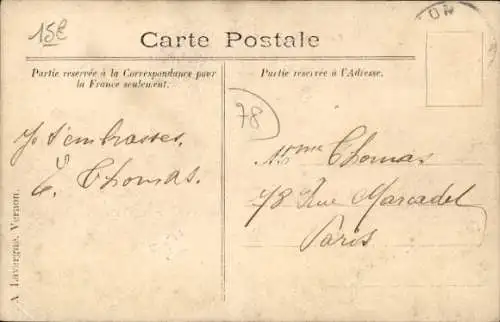 15€
ON
Carte Postale
Partie reservée à la Correspondance pour
la France seulement.
Partie reservée à l'Adresse.
78
Je t'embrasses.
E. Thomas.
Mme Thomas
78 Rue Marcadet
Paris
A. Lavergne, Vernon.